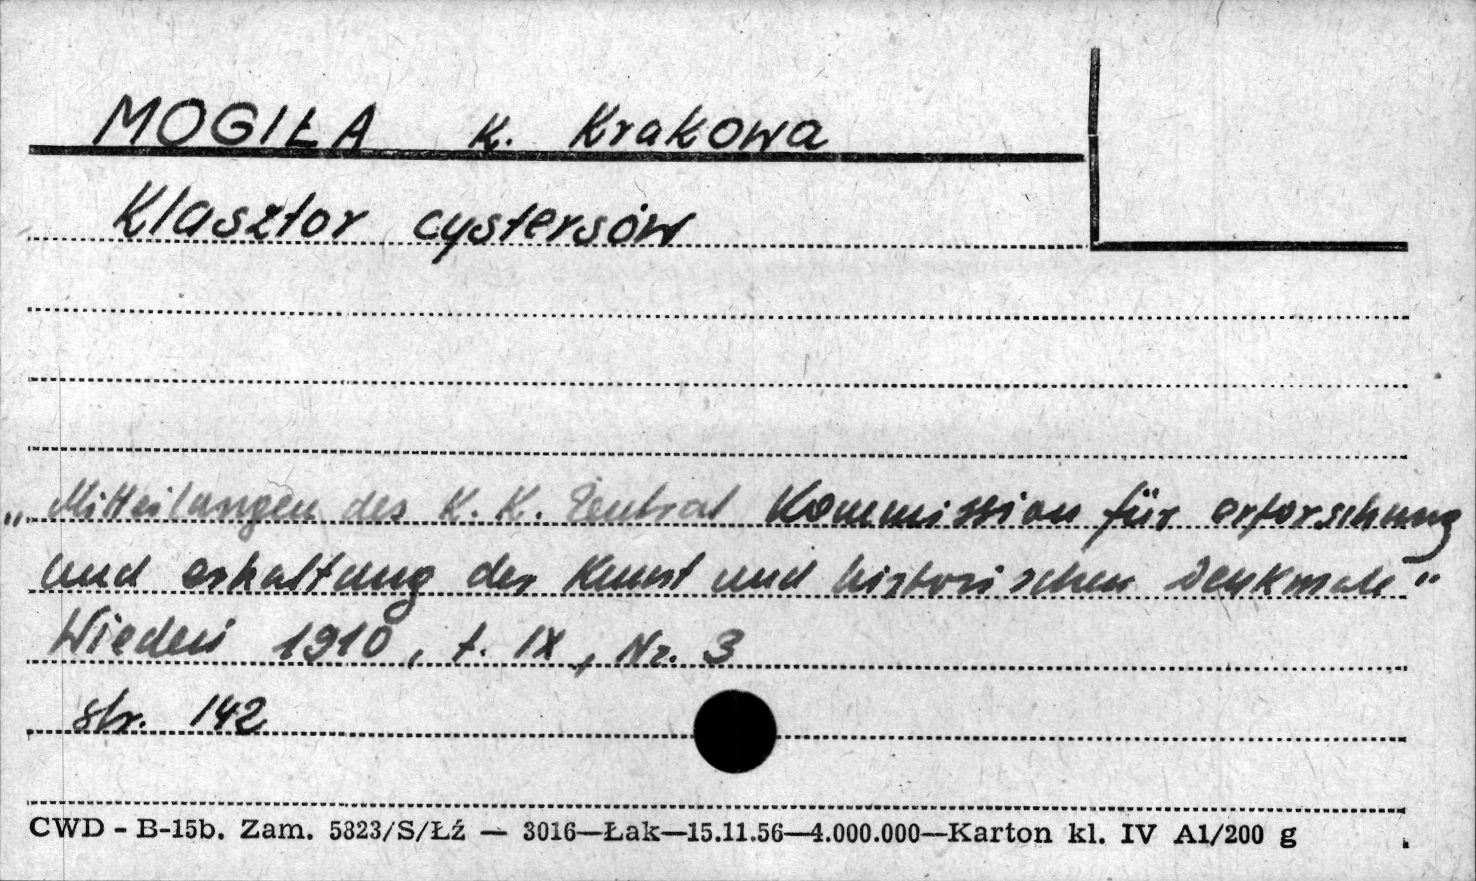 MOGIŁA k. Krakowa
Klasztor cystersów
„Mitteilungen des K. K. Zentral Kommission für erforschung
und erhaltung der Kunst und historischen Denkmale"
Wiedeń 1910, t. IX, Nr. 3
str. 142
CWD - B-15b. Zam. 5823/S/Łź — 3016—Łak—15.11.56—4.000.000—Karton kl. IV A1/200 g